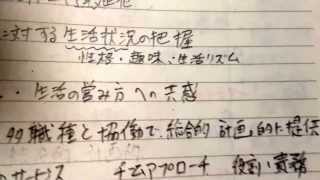 に対する生活状況の把握
性格・趣味・生活リズム
・生活の営み方への共感
多職種と協働で、総合的計画的に提供
のサービス チームアプローチ 役割・責務